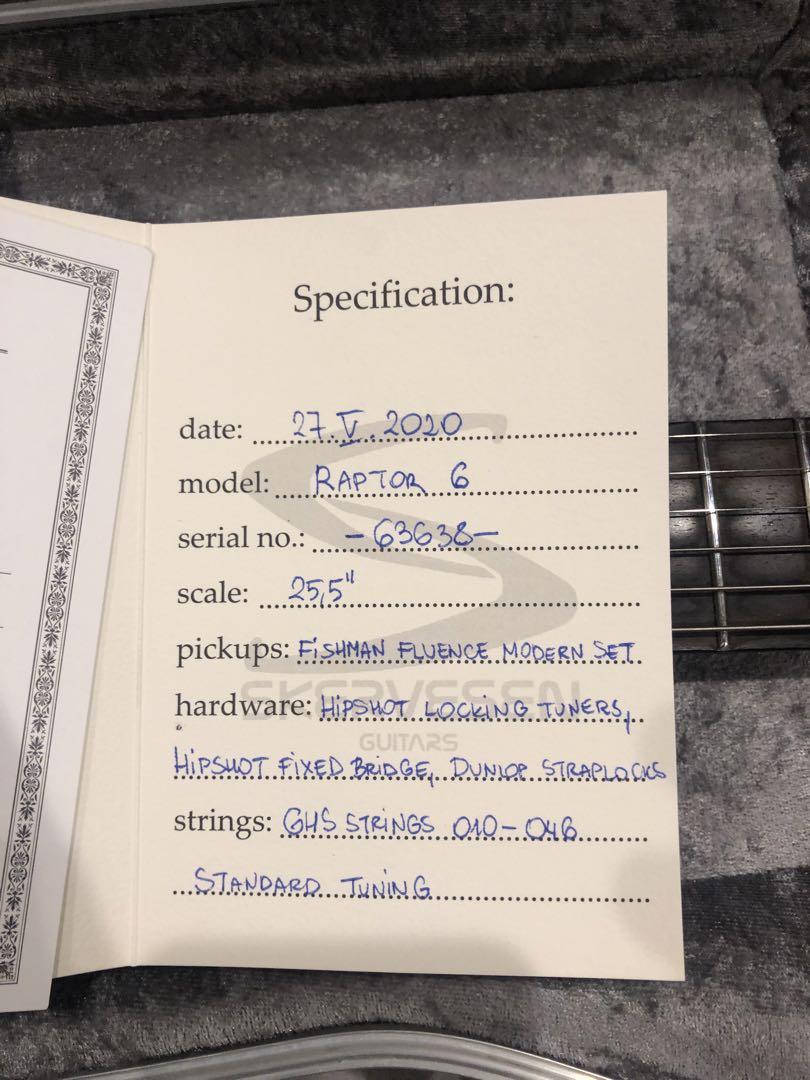 Specification:
date: 27.V.2020
model: RAPTOR 6
serial no.: -63638-
scale: 25,5"
pickups: FISHMAN FLUENCE MODERN SET
SKERVESEN
hardware: HIPSHOT LOCKING TUNERS,
GUITARS
HIPSHOT FIXED BRIDGE, DUNLOP STRAPLOCKS
strings: GHS STRINGS 010-046
STANDARD TUNING